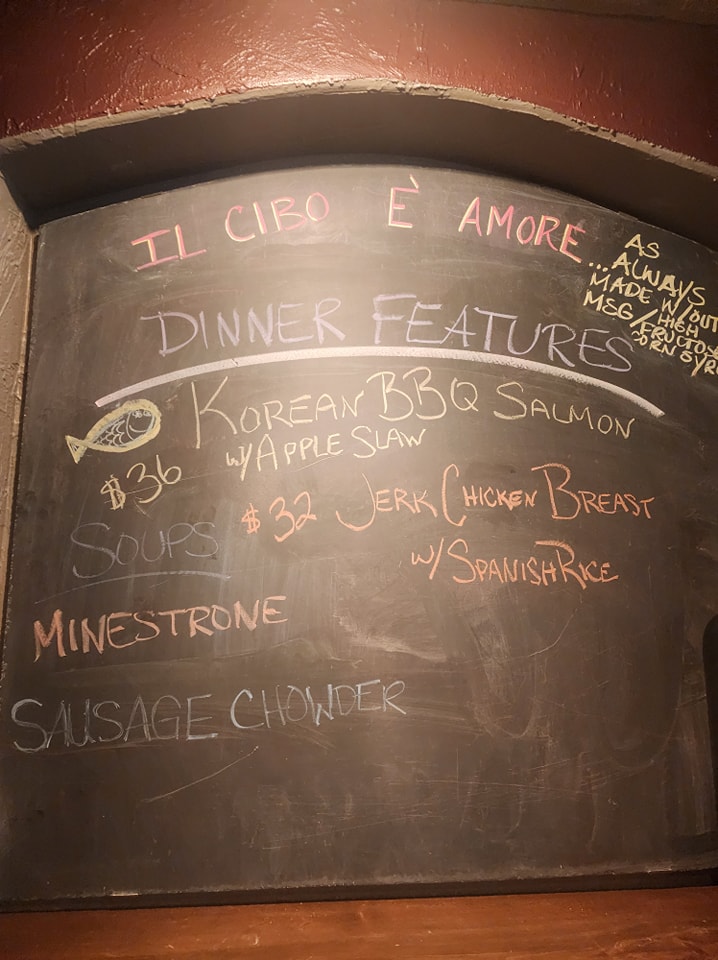 IL CIBO È AMORE
AS
...ALWAYS
MADE W/OUT
MSG/HIGH
FRUCTOSE
CORN SYRU
DINNER FEATURES
KOREAN BBQ SALMON
W/APPLE SLAW
$36
$32 JERK CHICKEN BREAST
W/SPANISH RICE
SOUPS
MINESTRONE
SAUSAGE CHOWDER